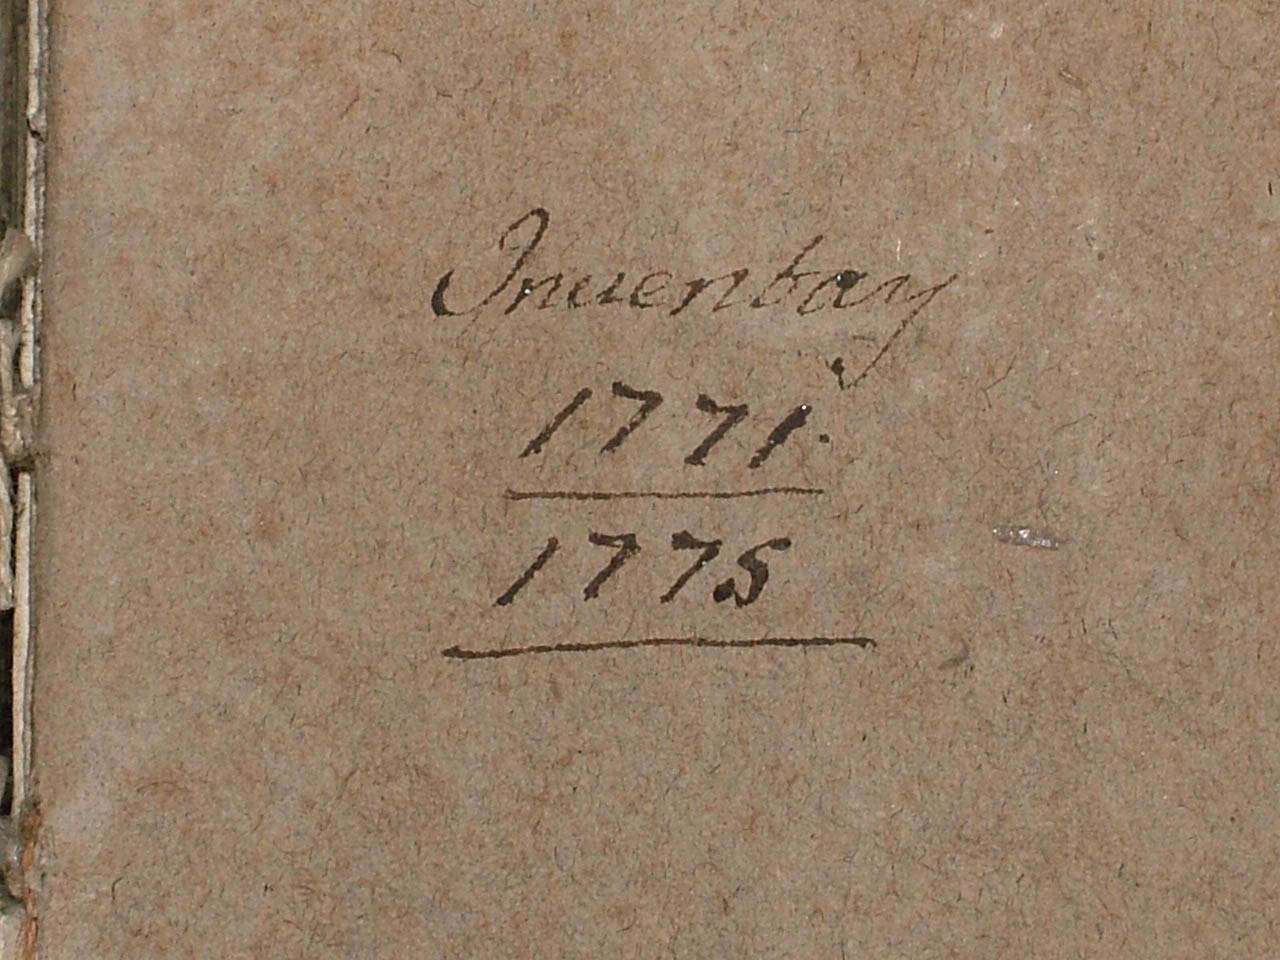 Inuentary
1771.
1775